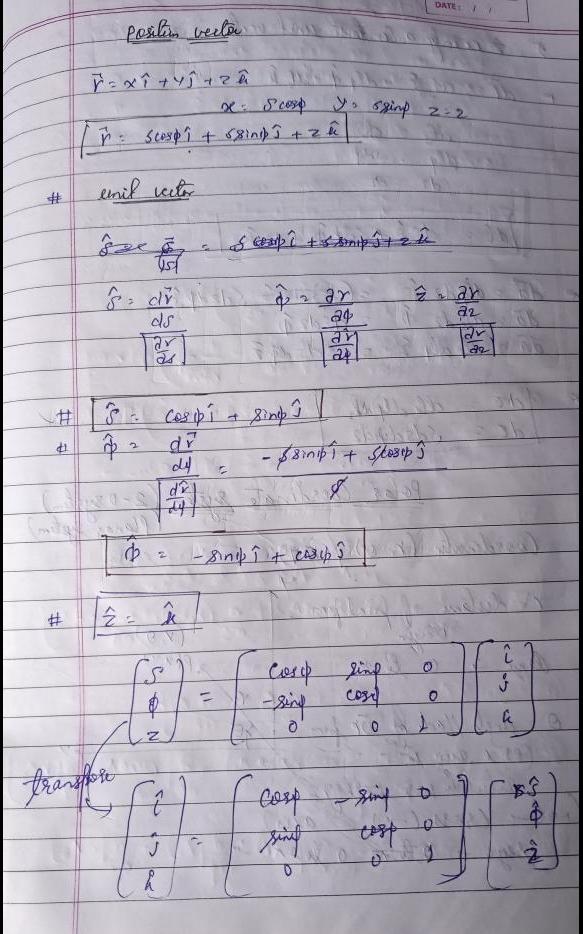 DATE: / /
Position vector
r⃗ = xî + yĵ + zk̂
x = scosφ y = ssinφ z = z
r⃗ = scosφ î + ssinφ ĵ + z k̂
# unit vector
ŝ = s⃗/|s⃗| = s cosφ î + s sinφ ĵ + z k̂
ŝ = (dr⃗/ds)/|∂r/∂s| φ̂ = (∂r/∂φ)/|∂r/∂φ| ẑ = (∂r/∂z)/|∂r/∂z|
# ŝ = cosφ î + sinφ ĵ
# φ̂ = (dr⃗/dφ)/|dr⃗/dφ| = (-s sinφ î + s cosφ ĵ)/s
φ̂ = -sinφ î + cosφ ĵ
# ẑ = k̂
[s] = [cosφ sinφ 0] [î]
[φ] [-sinφ cosφ 0] [ĵ]
[z] [0 0 1] [k]
transpose
[î] = [cosφ -sinφ 0] [ŝ]
[ĵ] [sinφ cosφ 0] [φ̂]
[k] [0 0 1] [ẑ]